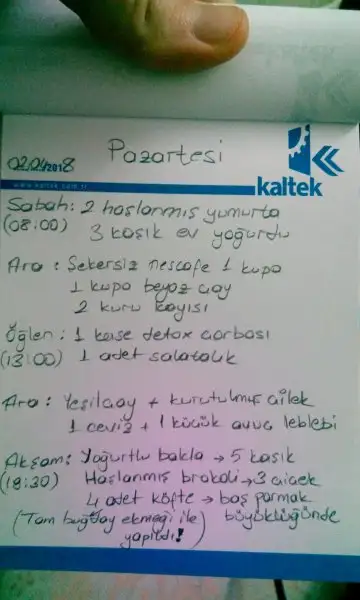 Pazartesi
02.04.2018
kaltek
www.kaltek.com.tr
Sabah: 2 haşlanmış yumurta
(08:00) 3 kaşık ev yoğurdu
Ara : Şekersiz nescafe 1 kupa
1 kupa beyaz çay
2 kuru kayısı
Öğlen : 1 kase detox çorbası
(13:00) 1 adet salatalık
Ara : Yeşilçay + kurutulmuş çilek
1 ceviz + 1 küçük avuç leblebi
Akşam: Yoğurtlu bakla → 5 kaşık
(18:30) Haşlanmış brokoli → 3 çiçek
4 adet köfte → baş parmak
(Tam buğday ekmeği ile) büyüklüğünde
yapıldı!